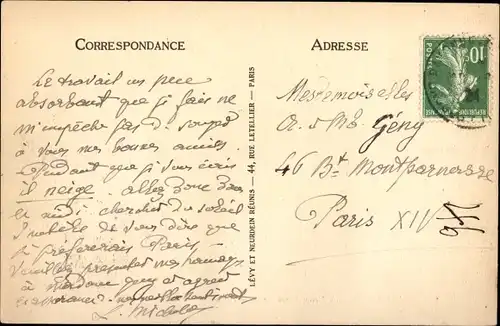 CORRESPONDANCE
Le travail un peu
absorbant que je fais ne
m'empêche pas de
à vous mes bonnes amies.
Pendant que je vous écris
il neige. Allez donc dans
le midi chercher du soleil
Inutile de vous dire que
je préfèrerais Paris -
Veuillez présenter mes hommages
à Madame Gény et agréer
LÉVY ET NEURDEIN RÉUNIS — 44, RUE LETELLIER — PARIS
ADRESSE
Mesdemoiselles
A. & Mb. Gény
46 Bt. Montparnasse
Paris XIV
POSTES
10